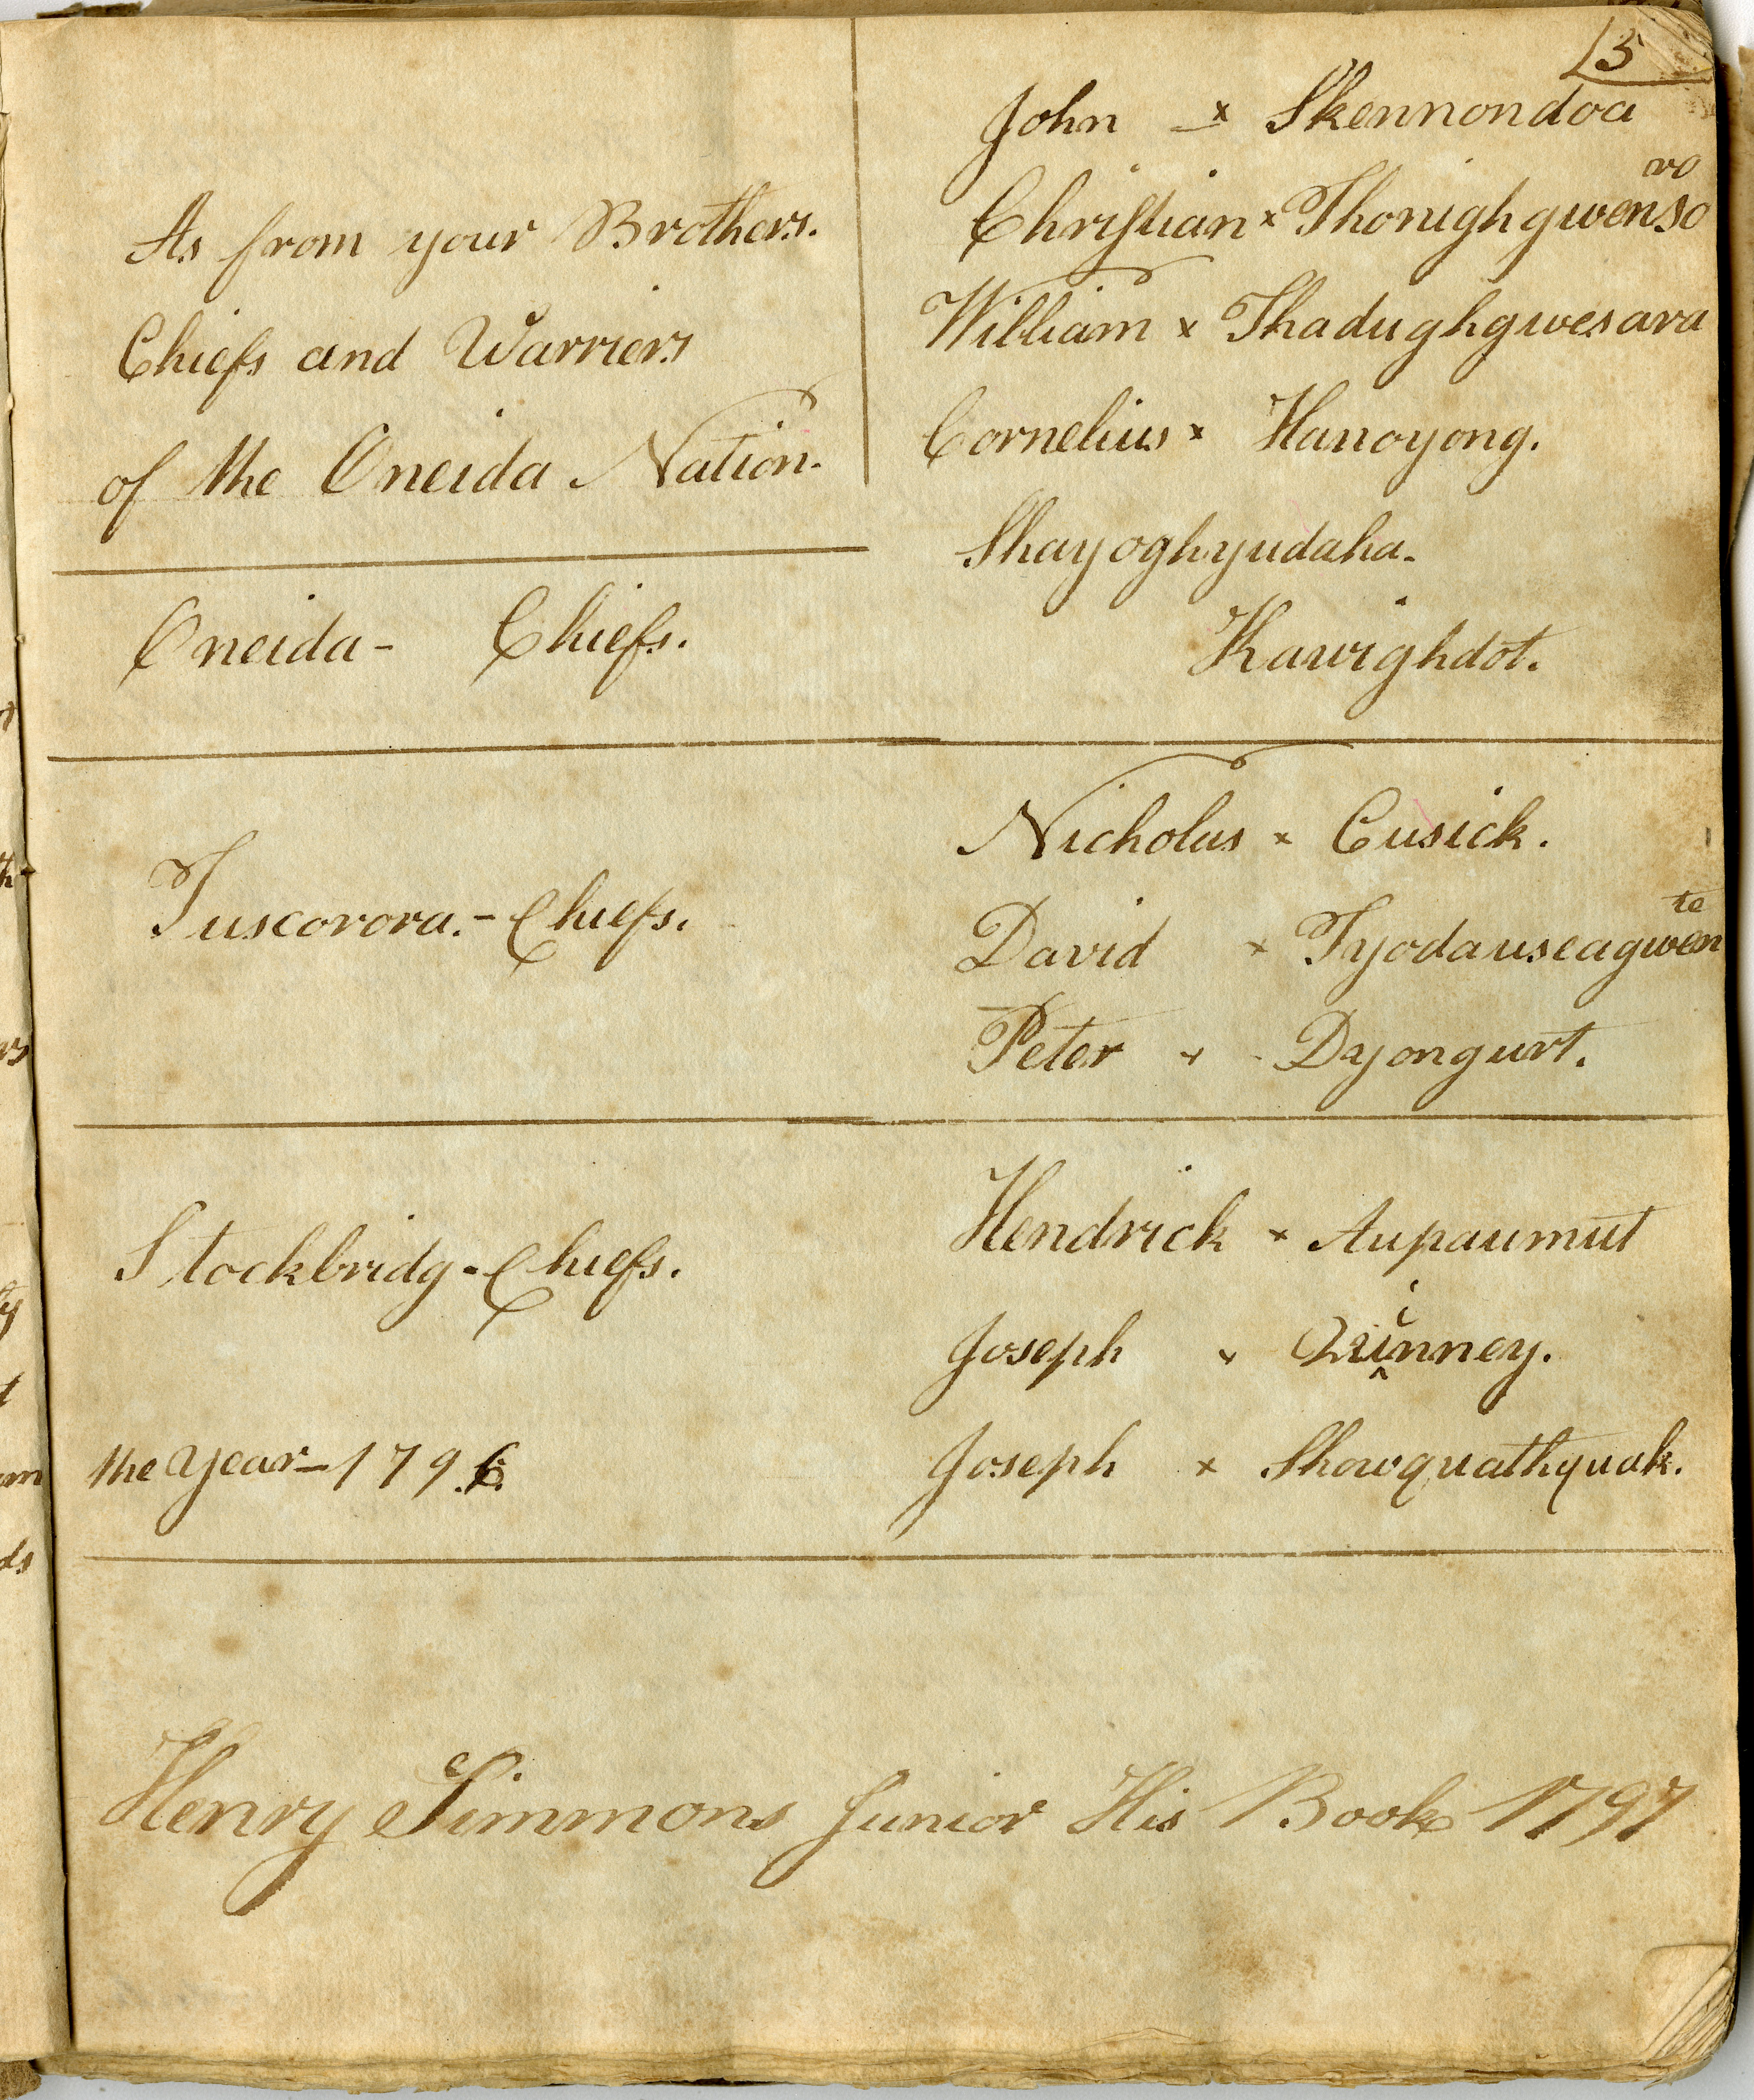 15
John x Skennondoa
As from your Brothers.
Chiefs and Warriers
of the Oneida Nation.
Christian x Thonighgwenso
vo
William x Thadughgwesara
Cornelius x Hanoyong.
Shayoghyudaha.
Oneida - Chiefs.
Kawighdot.
Tuscorora. - Chiefs.
Nicholas x Cusick.
David x Tyodauseagwen
te
Peter x - Dyongurt.
Stockbridg - Chiefs.
Hendrick x Aupaumut
Joseph x Quinney.
the year - 1796
Joseph x Showquathquak.
Henry Simmons Junior His Book 1797